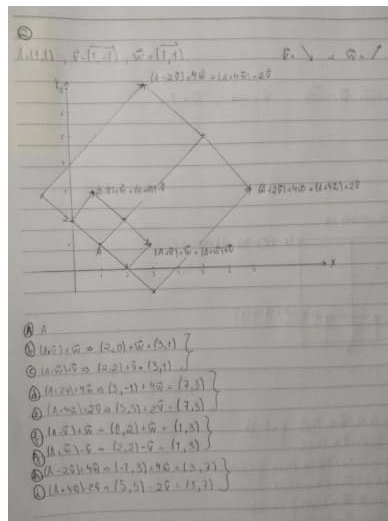 ②
A=(1,1) , v⃗=(1,-1) , w⃗=(1,1) v⃗=↘ e w⃗=↗
(A-2v⃗)+4w⃗=(A+4w⃗)-2v⃗
(A-v⃗)+w⃗=(A+w⃗)-v⃗
(A+2v⃗)+4w⃗=(A+4w⃗)+2v⃗
(A+v⃗)+w⃗=(A+w⃗)+v⃗
A
x
A
(A+v⃗)+w⃗ = (2,0)+w⃗ = (3,1)
(A+w⃗)+v⃗ = (2,2)+v⃗ = (3,1)
(A+2v⃗)+4w⃗ = (3,-1)+4w⃗ = (7,3)
(A+4w⃗)+2v⃗ = (5,5)+2v⃗ = (7,3)
(A-v⃗)+w⃗ = (0,2)+w⃗ = (1,3)
(A+w⃗)-v⃗ = (2,2)-v⃗ = (1,3)
(A-2v⃗)+4w⃗ = (-1,3)+4w⃗ = (3,7)
(A+4w⃗)-2v⃗ = (5,5)-2v⃗ = (3,7)